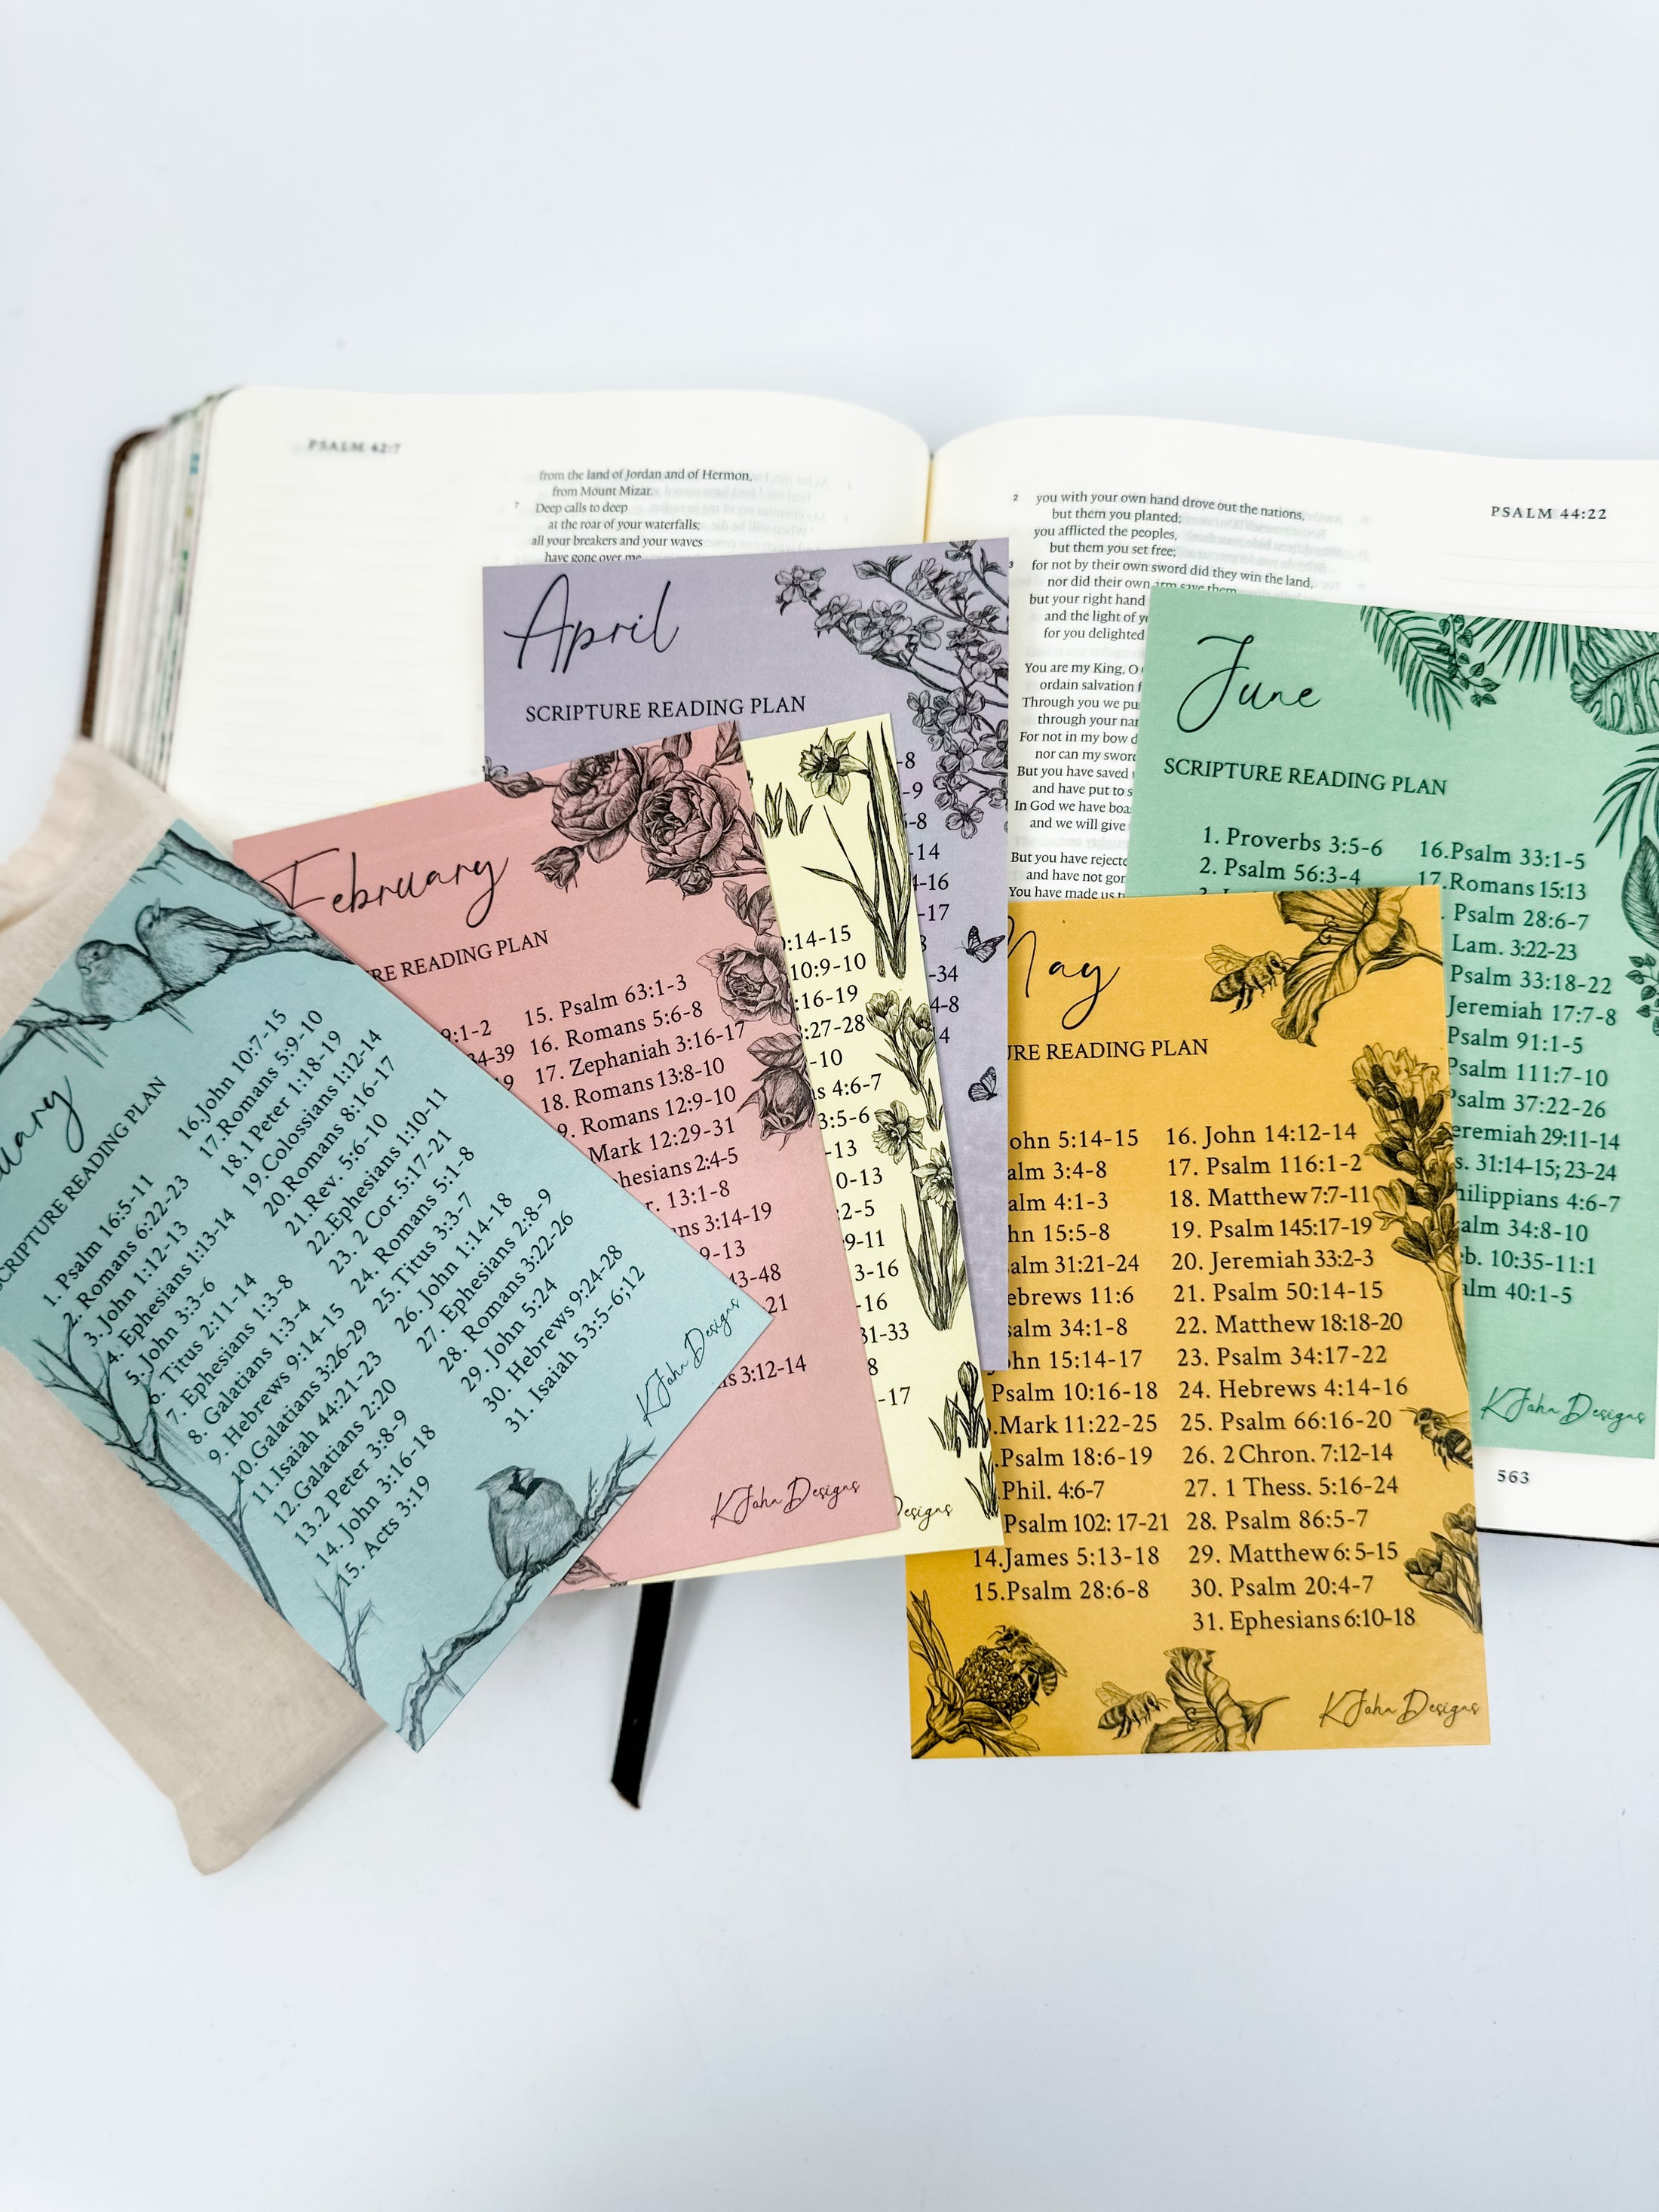 PSALM 42:7
from the land of Jordan and of Hermon,
from Mount Mizar.
7 Deep calls to deep
at the roar of your waterfalls;
all your breakers and your waves
have gone over me
2 you with your own hand drove out the nations,
but them you planted;
you afflicted the peoples,
but them you set free;
3 for not by their own sword did they win the land,
nor did their own arm save them
but your right hand
and the light of
for you delighted
You are my King, O
ordain salvation
Through you we
through your
For not in my bow
nor can my sword
But you have saved
and have put to
In God we have
and we will give
But you have
and have not
You have made us
PSALM 44:22
563
April
SCRIPTURE READING PLAN
-8
-9
-8
-14
-16
-17
-34
4-8
4
June
SCRIPTURE READING PLAN
1. Proverbs 3:5-6
2. Psalm 56:3-4
16.Psalm 33:1-5
17.Romans 15:13
. Psalm 28:6-7
Lam. 3:22-23
Psalm 33:18-22
Jeremiah 17:7-8
Psalm 91:1-5
Psalm 111:7-10
Psalm 37:22-26
eremiah 29:11-14
s. 31:14-15; 23-24
hilippians 4:6-7
alm 34:8-10
eb. 10:35-11:1
alm 40:1-5
KJohn Designs
February
RE READING PLAN
9:1-2
34-39
19
15. Psalm 63:1-3
16. Romans 5:6-8
17. Zephaniah 3:16-17
18. Romans 13:8-10
9. Romans 12:9-10
Mark 12:29-31
phesians 2:4-5
r. 13:1-8
ns 3:14-19
9-13
43-48
21
s 3:12-14
KJohn Designs
:14-15
10:9-10
:16-19
:27-28
-10
s 4:6-7
3:5-6
-13
0-13
2-5
9-11
3-16
-16
31-33
8
-17
Designs
May
URE READING PLAN
ohn 5:14-15
alm 3:4-8
alm 4:1-3
hn 15:5-8
alm 31:21-24
ebrews 11:6
salm 34:1-8
ohn 15:14-17
Psalm 10:16-18
.Mark 11:22-25
.Psalm 18:6-19
.Phil. 4:6-7
Psalm 102: 17-21
14.James 5:13-18
15.Psalm 28:6-8
16. John 14:12-14
17. Psalm 116:1-2
18. Matthew 7:7-11
19. Psalm 145:17-19
20. Jeremiah 33:2-3
21. Psalm 50:14-15
22. Matthew 18:18-20
23. Psalm 34:17-22
24. Hebrews 4:14-16
25. Psalm 66:16-20
26. 2 Chron. 7:12-14
27. 1 Thess. 5:16-24
28. Psalm 86:5-7
29. Matthew 6: 5-15
30. Psalm 20:4-7
31. Ephesians 6:10-18
KJohn Designs
uary
SCRIPTURE READING PLAN
1. Psalm 16:5-11
2. Romans 6:22-23
3. John 1:12-13
4. Ephesians 1:13-14
5. John 3:3-6
6. Titus 2:11-14
7. Ephesians 1:3-8
8. Galatians 1:3-4
9. Hebrews 9:14-15
10.Galatians 3:26-29
11.Isaiah 44:21-23
12.Galatians 2:20
13.2 Peter 3:8-9
14. John 3:16-18
15. Acts 3:19
16.John 10:7-15
17.Romans 5:9-10
18.1 Peter 1:18-19
19.Colossians 1:12-14
20.Romans 8:16-17
21.Rev. 5:6-10
22.Ephesians 1:10-11
23. 2 Cor.5:17-21
24. Romans 5:1-8
25. Titus 3:3-7
26. John 1:14-18
27. Ephesians 2:8-9
28. Romans 3:22-26
29. John 5:24
30. Hebrews 9:24-28
31. Isaiah 53:5-6;12
KJohn Designs